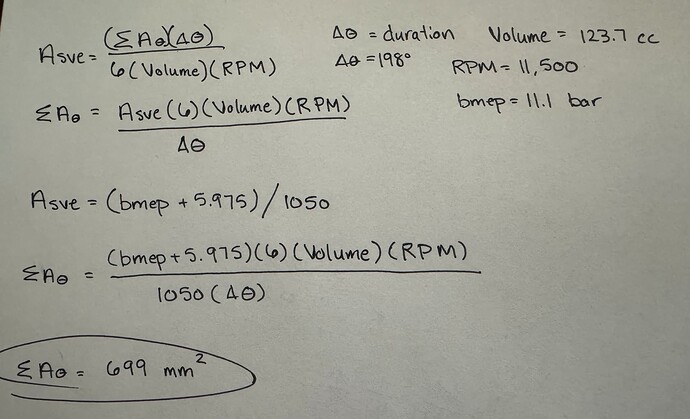 Asve = (ΣAθ)(Δθ) / 6(Volume)(RPM)
Δθ = duration
Volume = 123.7 cc
Δθ = 198°
RPM = 11,500
bmep = 11.1 bar
ΣAθ = Asve(6)(Volume)(RPM) / Δθ
Asve = (bmep + 5.975)/1050
ΣAθ = (bmep + 5.975)(6)(Volume)(RPM) / 1050(Δθ)
ΣAθ = 699 mm²